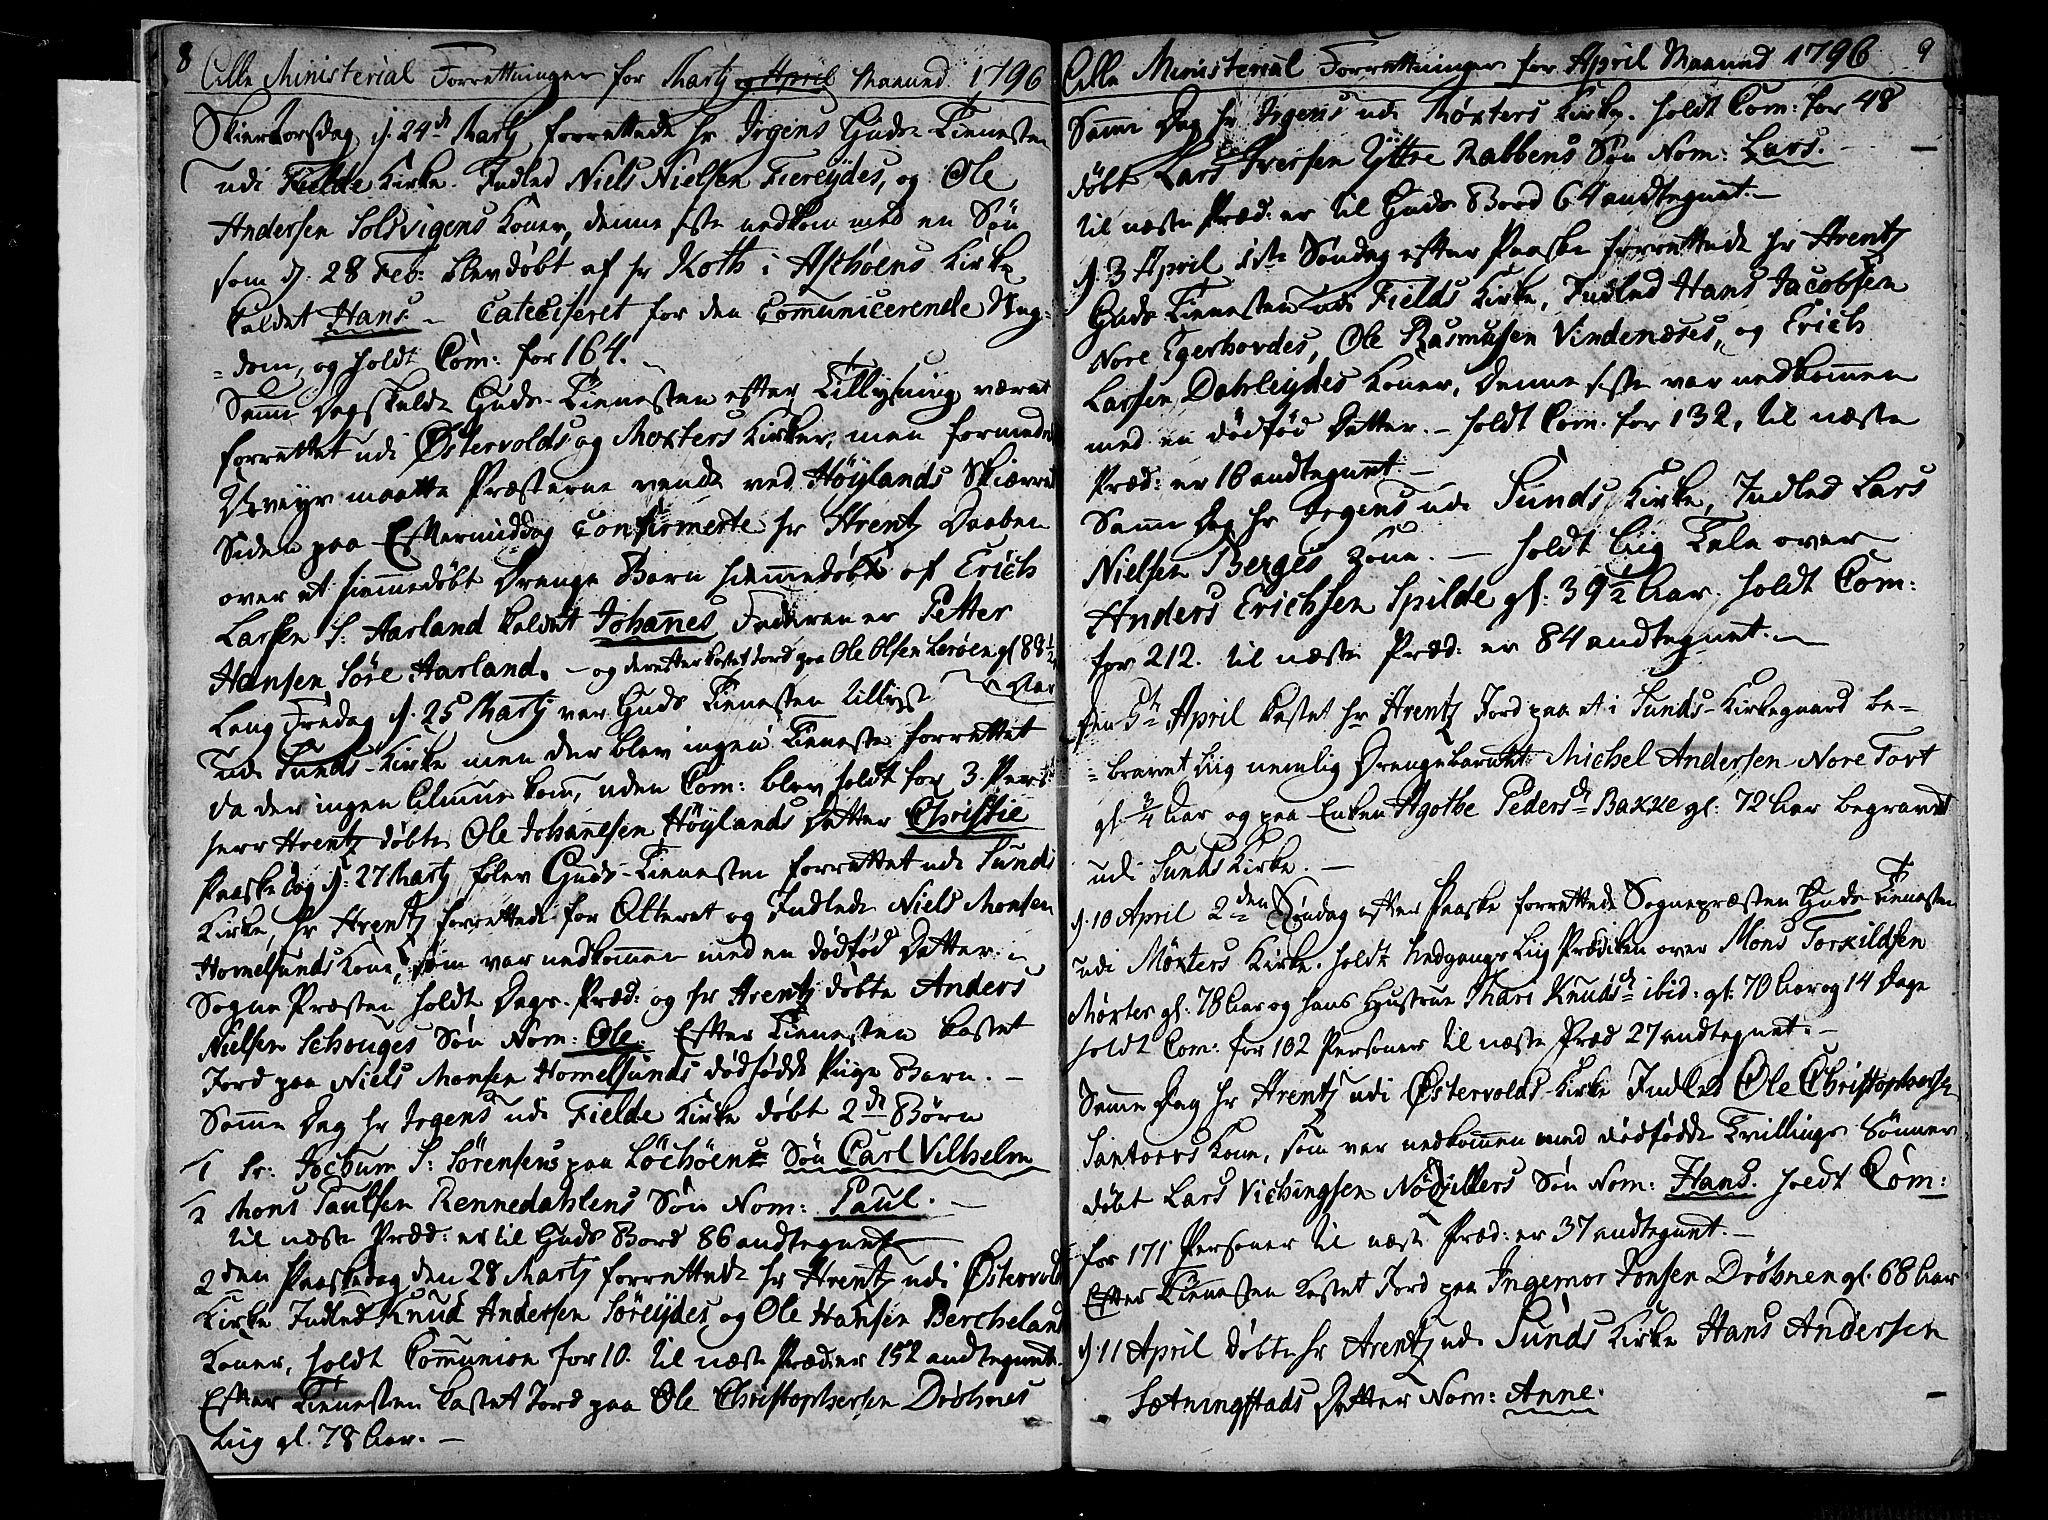 8 Alle Ministerial Forrettninger for Martj og April Maaned 1796
Skiertorsdag d. 24de Martj forrettede hr Irgens Guds Tienesten
udi Fielde Kirke. Indled Niels Nielsen Fiereÿdes, og Ole
Andersen Solsvigens Koner, denne siste nedkom med en Søn
som d: 28 Feb: blev døbt af hr Koth i Aschøens Kirke
kaldet Hans. Cateciseret for den Comunicerende Ung-
=dom, og holdt Com: for 164.
Samme Dag skulde Guds-Tienesten efter Tillysning været
forrettet udi Østervolds og Møxters Kirker, men formedelst
Uveyr maatte Præsterne vende ved Höylands Skiærret
Siden paa Eftermiddag Confirmerte hr Arentz Daaben
over et hiemmedøbt Drenge Barn hiemmedøbt af Erich
Larsen S: Aarland kaldet Johannes Faderen er Petter
Hansen Søre Aarland. - og derefter kastet Jord paa Ole Olsen Lerøen gl 88 1/2
Aar
Lang Fredag d. 25 Martj var Guds Tienesten tillyst
udi Sunds-Kirke men der blev ingen Tieneste forrettet
da der ingen Almue kom, uden Com: blev holdt for 3. Pers:
herr Arentz døbte Ole Johannesen Höylands Datter Christie
Paaskedag d: 27 Martj blev Guds-Tienesten forrettet udi Sunds
Kirke, hr Arentz forrettede for Alteret og Indlede Niels Monsen
Homelsunds Kone, som var nedkommen med en dødfød Datter.
Sogne Præsten holdt Dags-Præd: og hr Arentz døbte Anders
Nielsen Schouges Søn Nom: Ole. Efter Tienesten kastet
Jord paa Niels Monsen Homelsunds dødfødde Piige Barn. -
Samme Dag hr Irgens udi Fielde Kirke døbt 2de Børn
1 Sr: Jochum S: Sörensens paa Löchöens Søn Carl Vilhelm
2 Mons Paulsen Rennedahlens Søn Nom: Paul. -
til næste Præd: er til Guds Bord 86 andtegnet
2den Paaskedag den 28 Martj forrettede hr Arentz udi Østervolds
Kirke Indled Knud Andersen Söreÿdes og Ole Hansen Bercheland
Koner, holdt Communion for 10. til næste Præd: er 152 andtegnet.
Efter Tienesten kastet Jord paa Ole Christophersen Dröhnes
Liig gl. 78 Aar. -
Alle Ministerial Forrettninger for April Maaned 1796 9
Samme Dag hr Irgens udi Møxters Kirke. holdt Com: for 48
døbt Lars Iversen Yttre Rabbens Søn Nom: Lars.
til næste Præd: er til Guds Bord 64 andtegnet. -
d. 3 April 1ste Søndag efter Paaske forrettede hr Arentz
Guds Tienesten udi Fields Kirke, Indled Hans Jacobsen
Nore Egerhovdes, Ole Rasmusen Vindenæses, og Erich
Larsen Dahleÿdes Koner, denne siste var nedkommen
med en dødfød Datter. - holdt Com. for 132, til næste
Præd: er 18 andtegnet. -
Samme Dag hr Irgens udi Sunds Kirke, Indled Lars
Nielsen Berges Kone. - holdt Liig Tale over
Anders Erichsen Spilde gl: 39 1/2 Aar. holdt Com:
for 212. til næste Præd: er 84 andtegnet. -
den 5te April kastet hr Arentz Jord paa et i Sunds-Kirkegaard be-
=gravet Liig nemlig Drengebarnet Michel Andersen Nore Toft
gl. 3/4 Aar og paa Enken Agothe Pedersdt Bakke gl: 72 Aar begravet
udi Sunds Kirke. -
d. 10 April 2den Søndag efter Paaske forrettede Sognepræsten Guds Tienesten
udi Møxters Kirke. holdt Nedgangs Liig Prædiken over Mons Torkildsen
Møxter gl. 78 Aar og hans Hustrue Kari Knudsdt ibid: gl: 70 Aar og 14 Dage
holdt Com: for 102 Personer til næste Præd 27 andtegnet. -
Samme Dag hr Arentz udi Østervolds-Kirke Indled Ole Christophersen
Santorvs Kone, som var nedkommen med dødfødde Tvillings Sønner
døbt Lars Vichingsen Søn Nom: Hans. holdt Com:
for 171 Personer til næste Præd: er 37 andtegnet. -
Efter Tienesten kastet Jord paa Ingemor Jonsen Dröhnen gl. 68 Aar
d. 11 April døbte hr Arentz udi Sunds Kirke Hans Andersen
Sætningstads Datter Nom: Anne.